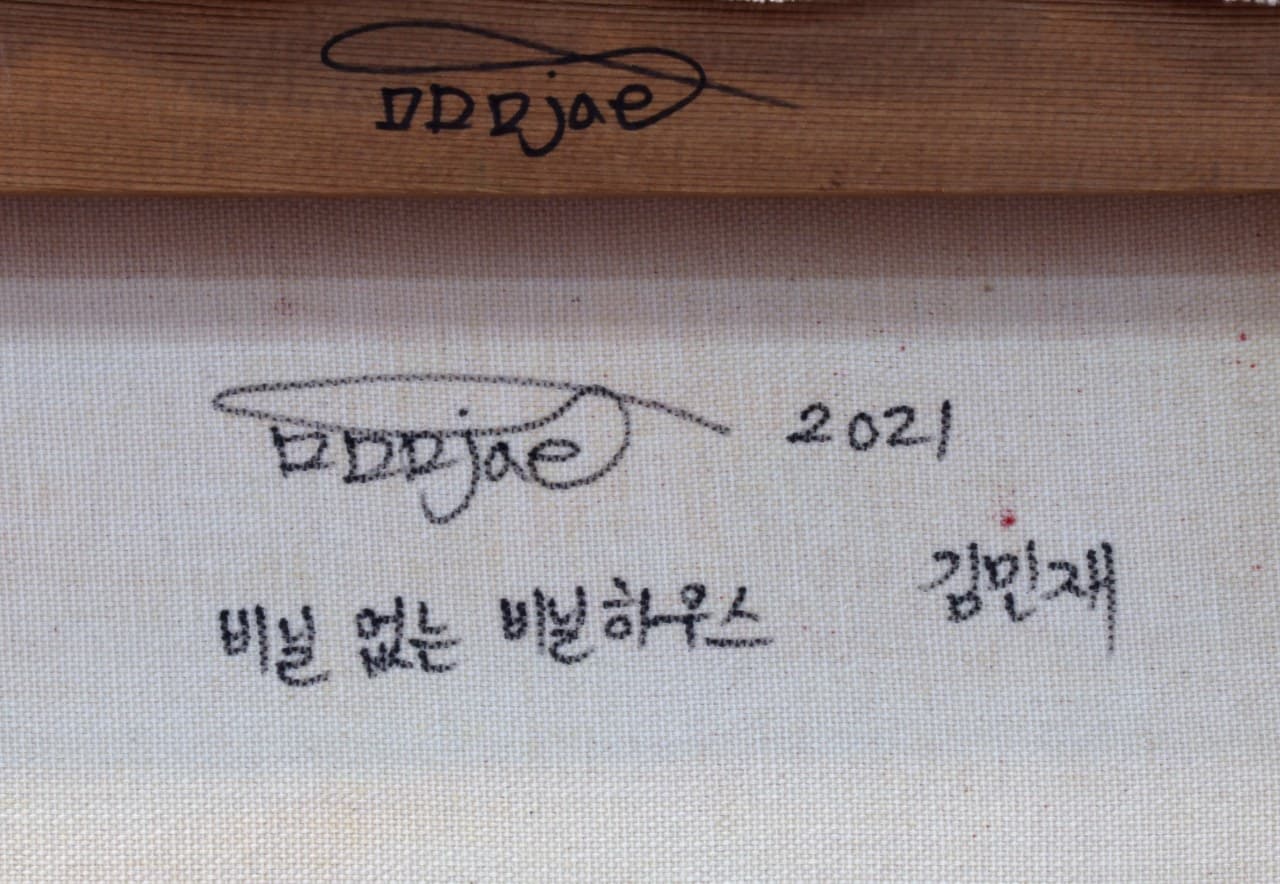 ㅁㅁㅁjae
ㅁㅁㅁjae 2021
비닐 없는 비닐하우스 김민재